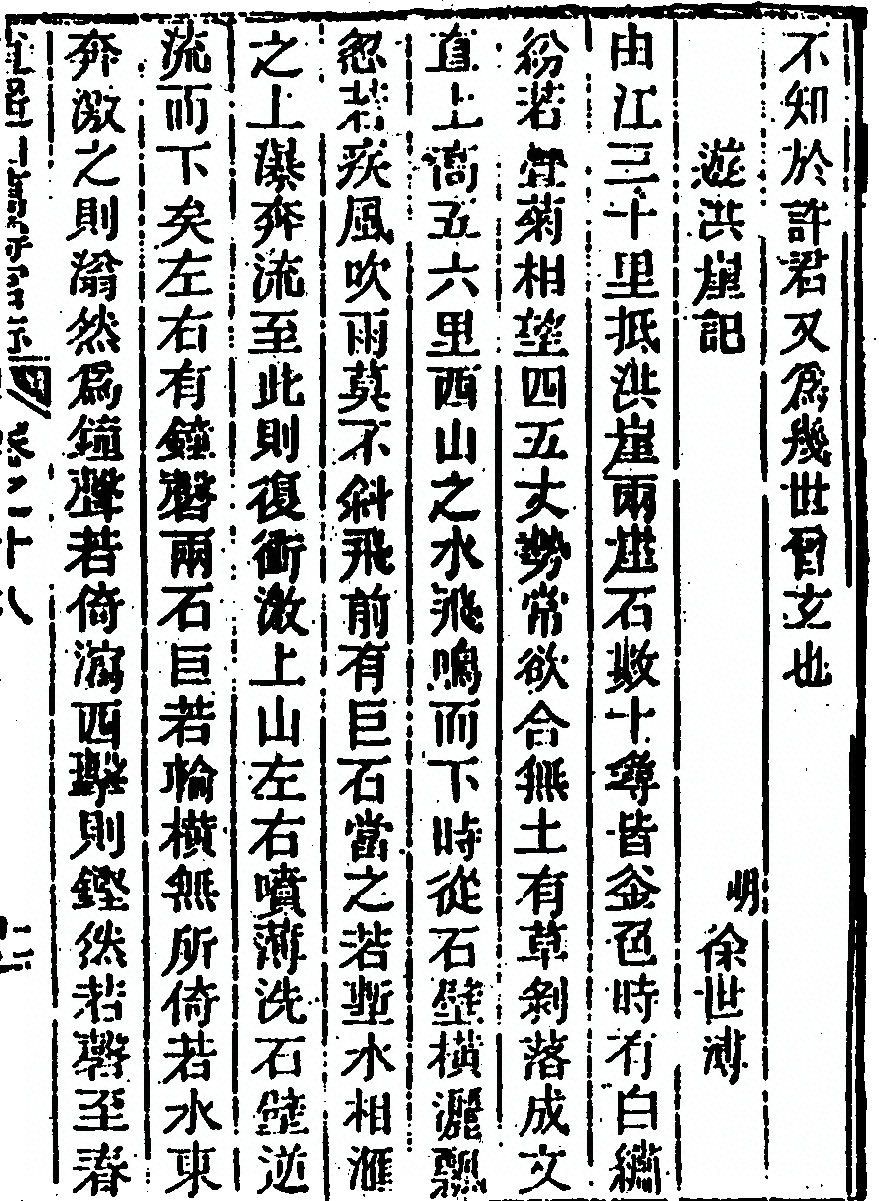 不知於許君又爲幾世曾玄也
遊洪崖記
明
徐世溥
由江三十里抵洪崖兩崖石數十尊皆釜色時有白繡
紛若疊菊相望四五丈勢常欲合無土有草剝落成文
直上高五六里西山之水飛鳴而下時從石壁橫灑飄
忽若疾風吹雨莫不斜飛前有巨石當之若塹水相滙
之上瀑奔流至此則復衝激上山左右噴薄洗石壁逆
流而下矣左右有鐘磬兩石巨若輪橫無所倚若水東
奔激之則滃然爲鐘聲若倚瀉西擊則鏗然若磬至春
卷之十八